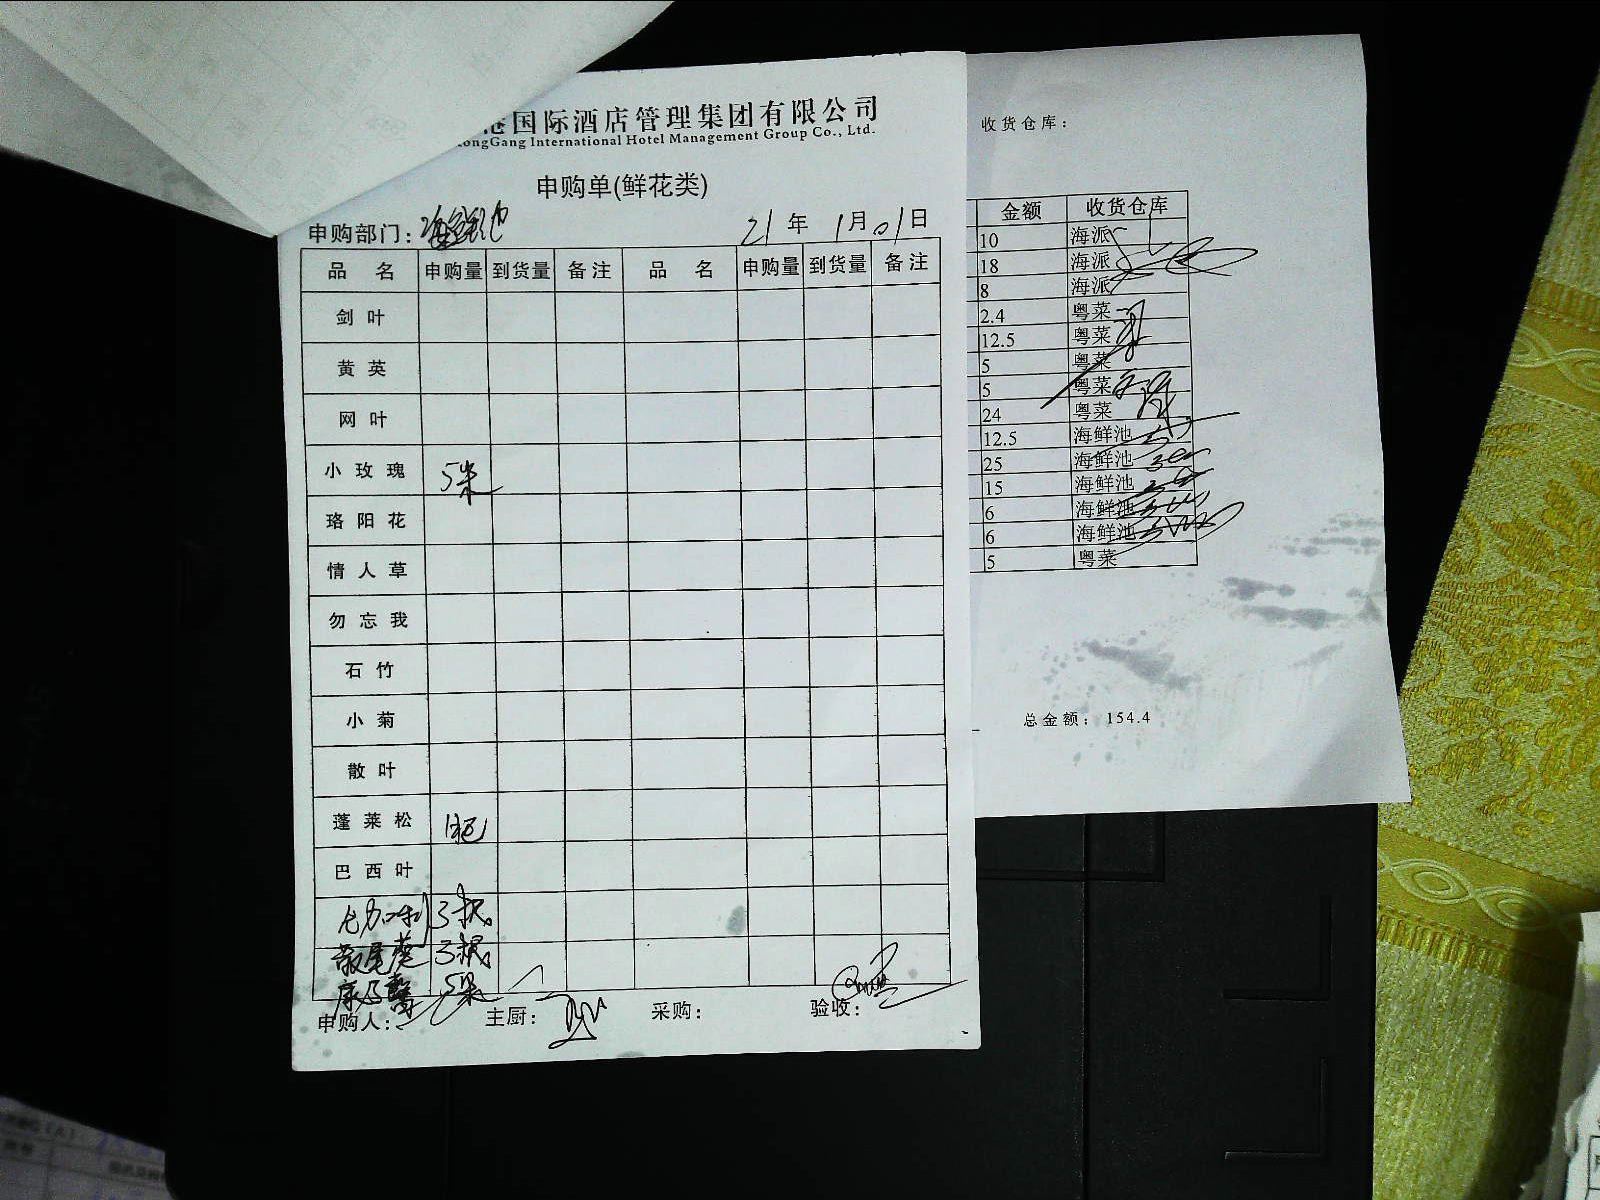 港国际酒店管理集团有限公司
ongGang International Hotel Management Group Co., Ltd.
申购单(鲜花类)
申购部门: 海鲜池 21 年 1 月 01 日
品 名 申购量 到货量 备注 品 名 申购量 到货量 备注
剑 叶
黄 英
网 叶
小 玫 瑰 5朵
珞 阳 花
情 人 草
勿 忘 我
石 竹
小 菊
散 叶
蓬 莱 松 1把
巴 西 叶
3根
散尾葵 3根
康乃馨 5朵
申购人: 主厨: 采购: 验收:
收货仓库:
金额 收货仓库
10 海派
18 海派
8 海派
2.4 粤菜
12.5 粤菜
5 粤菜
5 粤菜
24 粤菜
12.5 海鲜池
25 海鲜池
15 海鲜池
6 海鲜池
6 海鲜池
5 粤菜
总金额: 154.4